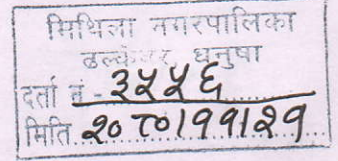 मिथिला नगरपालिका
ढल्केवर, धनुषा
दर्ता नं - ३५५६
मिति २०८०।११।२१